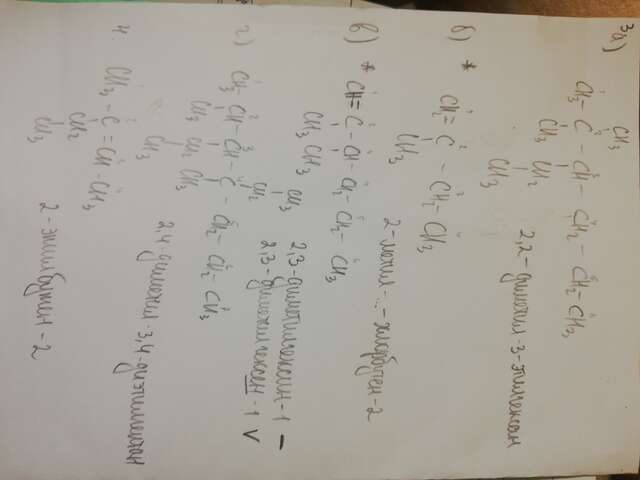 3а)
CH₃
CH₃ - C - CH - CH₂ - CH₂ - CH₃
CH₃ CH₂
CH₃
2,2 - диметил - 3 - этилгексан
б) *
CH₂ = C - CH₂ - CH₃
CH₃
2 - метил -...- хлорбутен - 2
в) *
CH = C - CH - CH₂ - CH₂ - CH₃
CH₃ CH₃
2,3 - диметилгексин - 1 -
2,3 - диметилгексен - 1 V
г)
CH₃
CH₂
CH₃ - CH - CH - C - CH₂ - CH₂ - CH₃
CH₃ CH₂ CH₃
CH₃
2,4 - диметил - 3,4 - диэтилгептан
4.
CH₃ - C = CH - CH₃
CH₂
CH₃
2 - этилбутен - 2